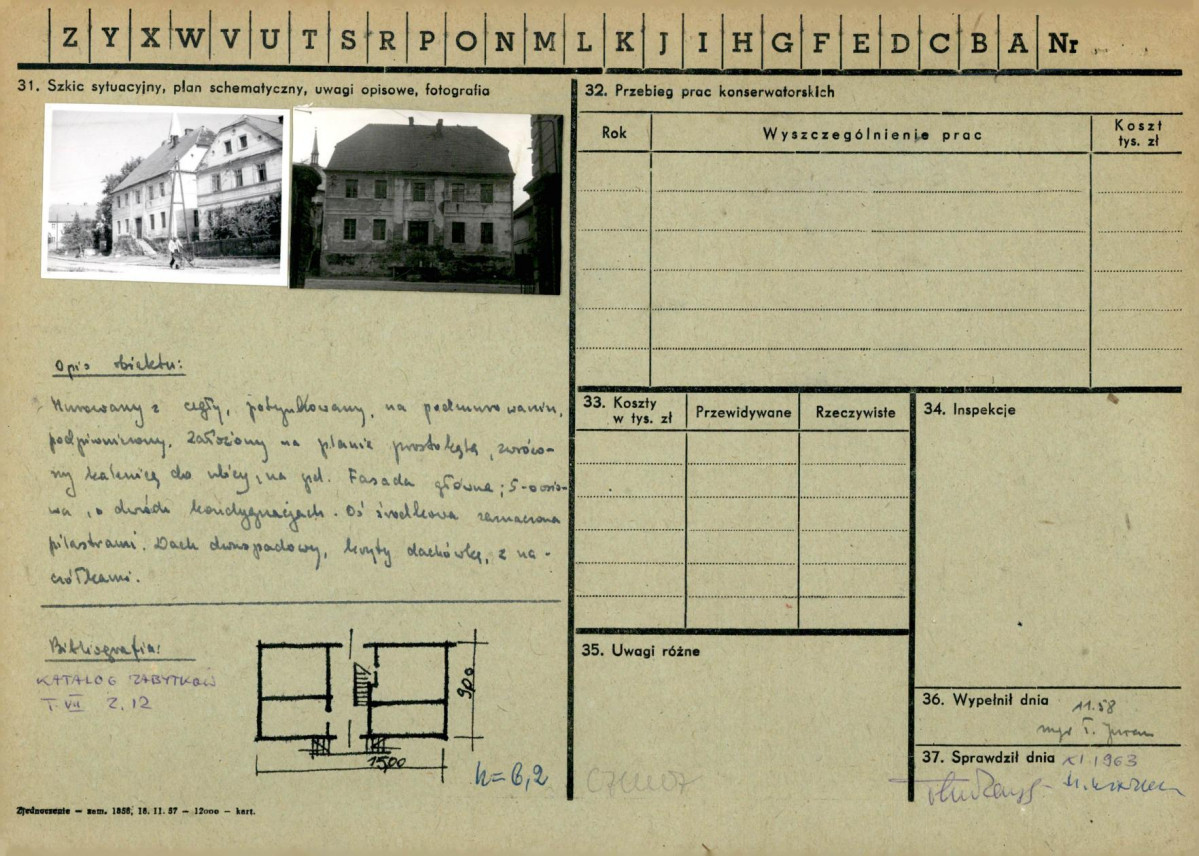 Z Y X W V U T S R P O N M L K J I H G F E D C B A Nr
31. Szkic sytuacyjny, plan schematyczny, uwagi opisowe, fotografia
Opis obiektu:
Murowany z cegły, potynkowany, na podmurowaniu,
podpiwniczony. Założony na planie prostokąta, zwróco-
ny kalenicą do ulicy, na pd. Fasada główna; 5-o osio-
wa, o dwóch kondygnacjach. Oś środkowa zaznaczona
pilastrami. Dach dwuspadowy, kryty dachówką, z na-
czółkami.
Bibliografia:
KATALOG ZABYTKÓW
T. VII Z. 12
9,00
15,00
h = 6,2
Zjednoczenie — zam. 1858, 16. 11. 57 — 12000 — kart.
32. Przebieg prac konserwatorskich
Rok Wyszczególnienie prac Koszt
tys. zł
33. Koszty
w tys. zł Przewidywane Rzeczywiste
34. Inspekcje
35. Uwagi różne
36. Wypełnił dnia 11.58
mgr T.
37. Sprawdził dnia XI 1963